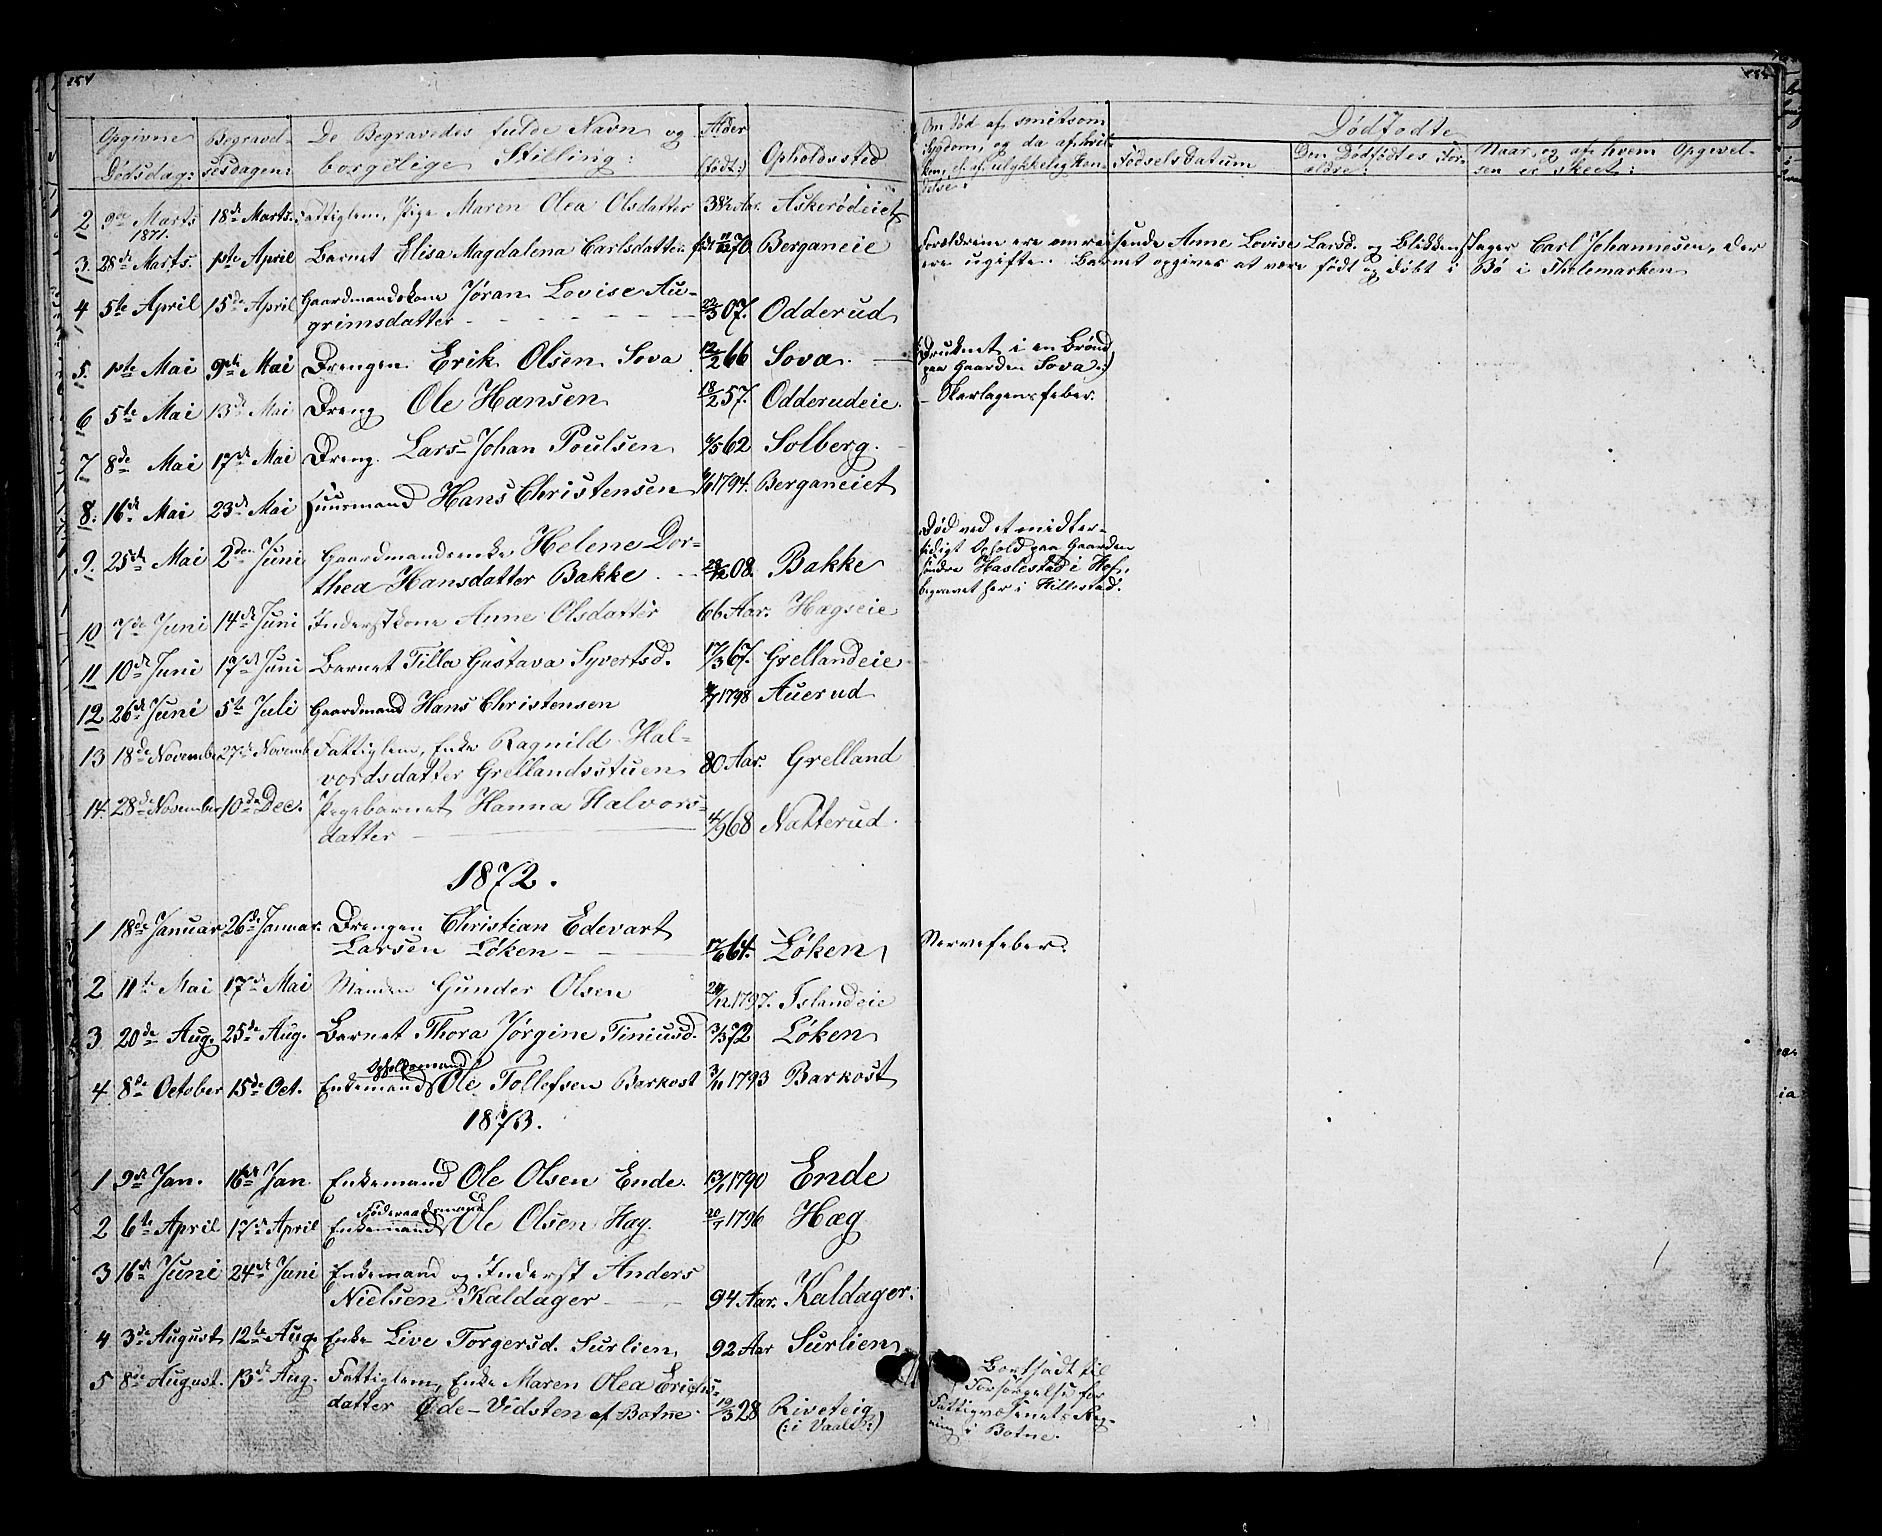 154
Opgivne Dødsdag: Begravelsesdagen: De Begravedes fulde Navn og borgelige Stilling: Alder (født:) Opholdssted
Om død af smitsom Sygdom, og da af hvilken, el. af ulykkelig Hændelse:
Dødfødte
Fødselsdatum Den Dødfødtes Forældre: Naar og af hvem Opgivelsen er skeet:
2 9de Marts 1871. 18de Marts. Fattiglem, Pige Maren Olea Olsdatter 38½ Aar. Askerødeiet
3. 28de Marts. 1ste April Barnet Elisa Magdalena Carlsdatter. født 70. Berganeie Forældrene ere omreisende Anne Lovise Larsd. og Blikkenslager Carl Johannesen, der
ere ugifte. Barnet opgives at være født og døbt i Bø i Thelemarken
4 5te April 15de April Gaardmandskone Jøran Lovise Au-
grimsdatter 07. Odderud
5. 1ste Mai 9de Mai Drengen Erik Olsen Sova 12/2 66 Sova. Druknet i en Brønd
paa Gaarden Sova:)
6 5te Mai 13de Mai Dreng Ole Hansen 18/2 57. Odderudeie. - Skarlagensfeber.
7 8de Mai 17de Mai Dreng. Lars Johan Poulsen 6/5 62 Solberg.
8. 16de Mai 23de Mai Huusmand Hans Christensen 1794. Berganeiet
9. 25de Mai 2den Juni Gaardmandsenke Helene Dor-
thea Hansdatter Bakke 08. Bakke Død ved et midler-
tidigt Ophold paa Gaarden
søndre Haslestad i Hof,
begravet her i Hillestad.
10 7de Juni 14de Juni Inderstkone Anne Olsdatter 66 Aar. Hagseie
11 10de Juni 17de Juni Barnet Tilla Gustava Syvertsd. 17/3 67. Grellandeie
12 26de Juni 5te Juli Gaardmand Hans Christensen 1798 Auerud
13 18de November 27de Novemb. Fattiglem, Enke Ragnild Hal-
vordsdatter Grellandsstuen 80 Aar. Grelland
14. 28de November 10de Dec. Pigebarnet Hanna Halvors-
datter 4/9 68 Natterud.
1872.
1 18de Januar 26de Januar. Drengen Christian Edevart
Larsen Løken 12/6 64. Løken Nervefeber.
2 11te Mai 17de Mai Manden Gunder Olsen 1797. Islandeie
3 20de Aug. 25de Aug. Barnet Thora Jørgine Tiniusd. 3/3 72 Løken
Opholdsmand
4 8de October 15de Oct. Enkemand Ole Tollefsen Barkost 3/11 1793 Barkost
1873.
1 9de Jan. 16de Jan Enkemand Ole Olsen Ende. 13/1 1790 Ende
Føderaadsmand
2 6te April 17de April Enkemand Ole Olsen Hæg. 20/7 1796 Hæg
3 16de Juni 24de Juni Enkemand og Inderst Anders
Nielsen Kaldager 94 Aar. Kaldager.
4 3de August 12te Aug. Enke Live Torgersd. Surlien 92 Aar Surlien
5 8de August. 13de Aug. Fattiglem, Enke Maren Olea Erichs-
datter Øde-Vidsten af Botne 19/3 28 Riveteig
(:i Vaale:) Bortsadt til
Forsørgelse for
Fattigvæsenets Reg-
ning i Botne.